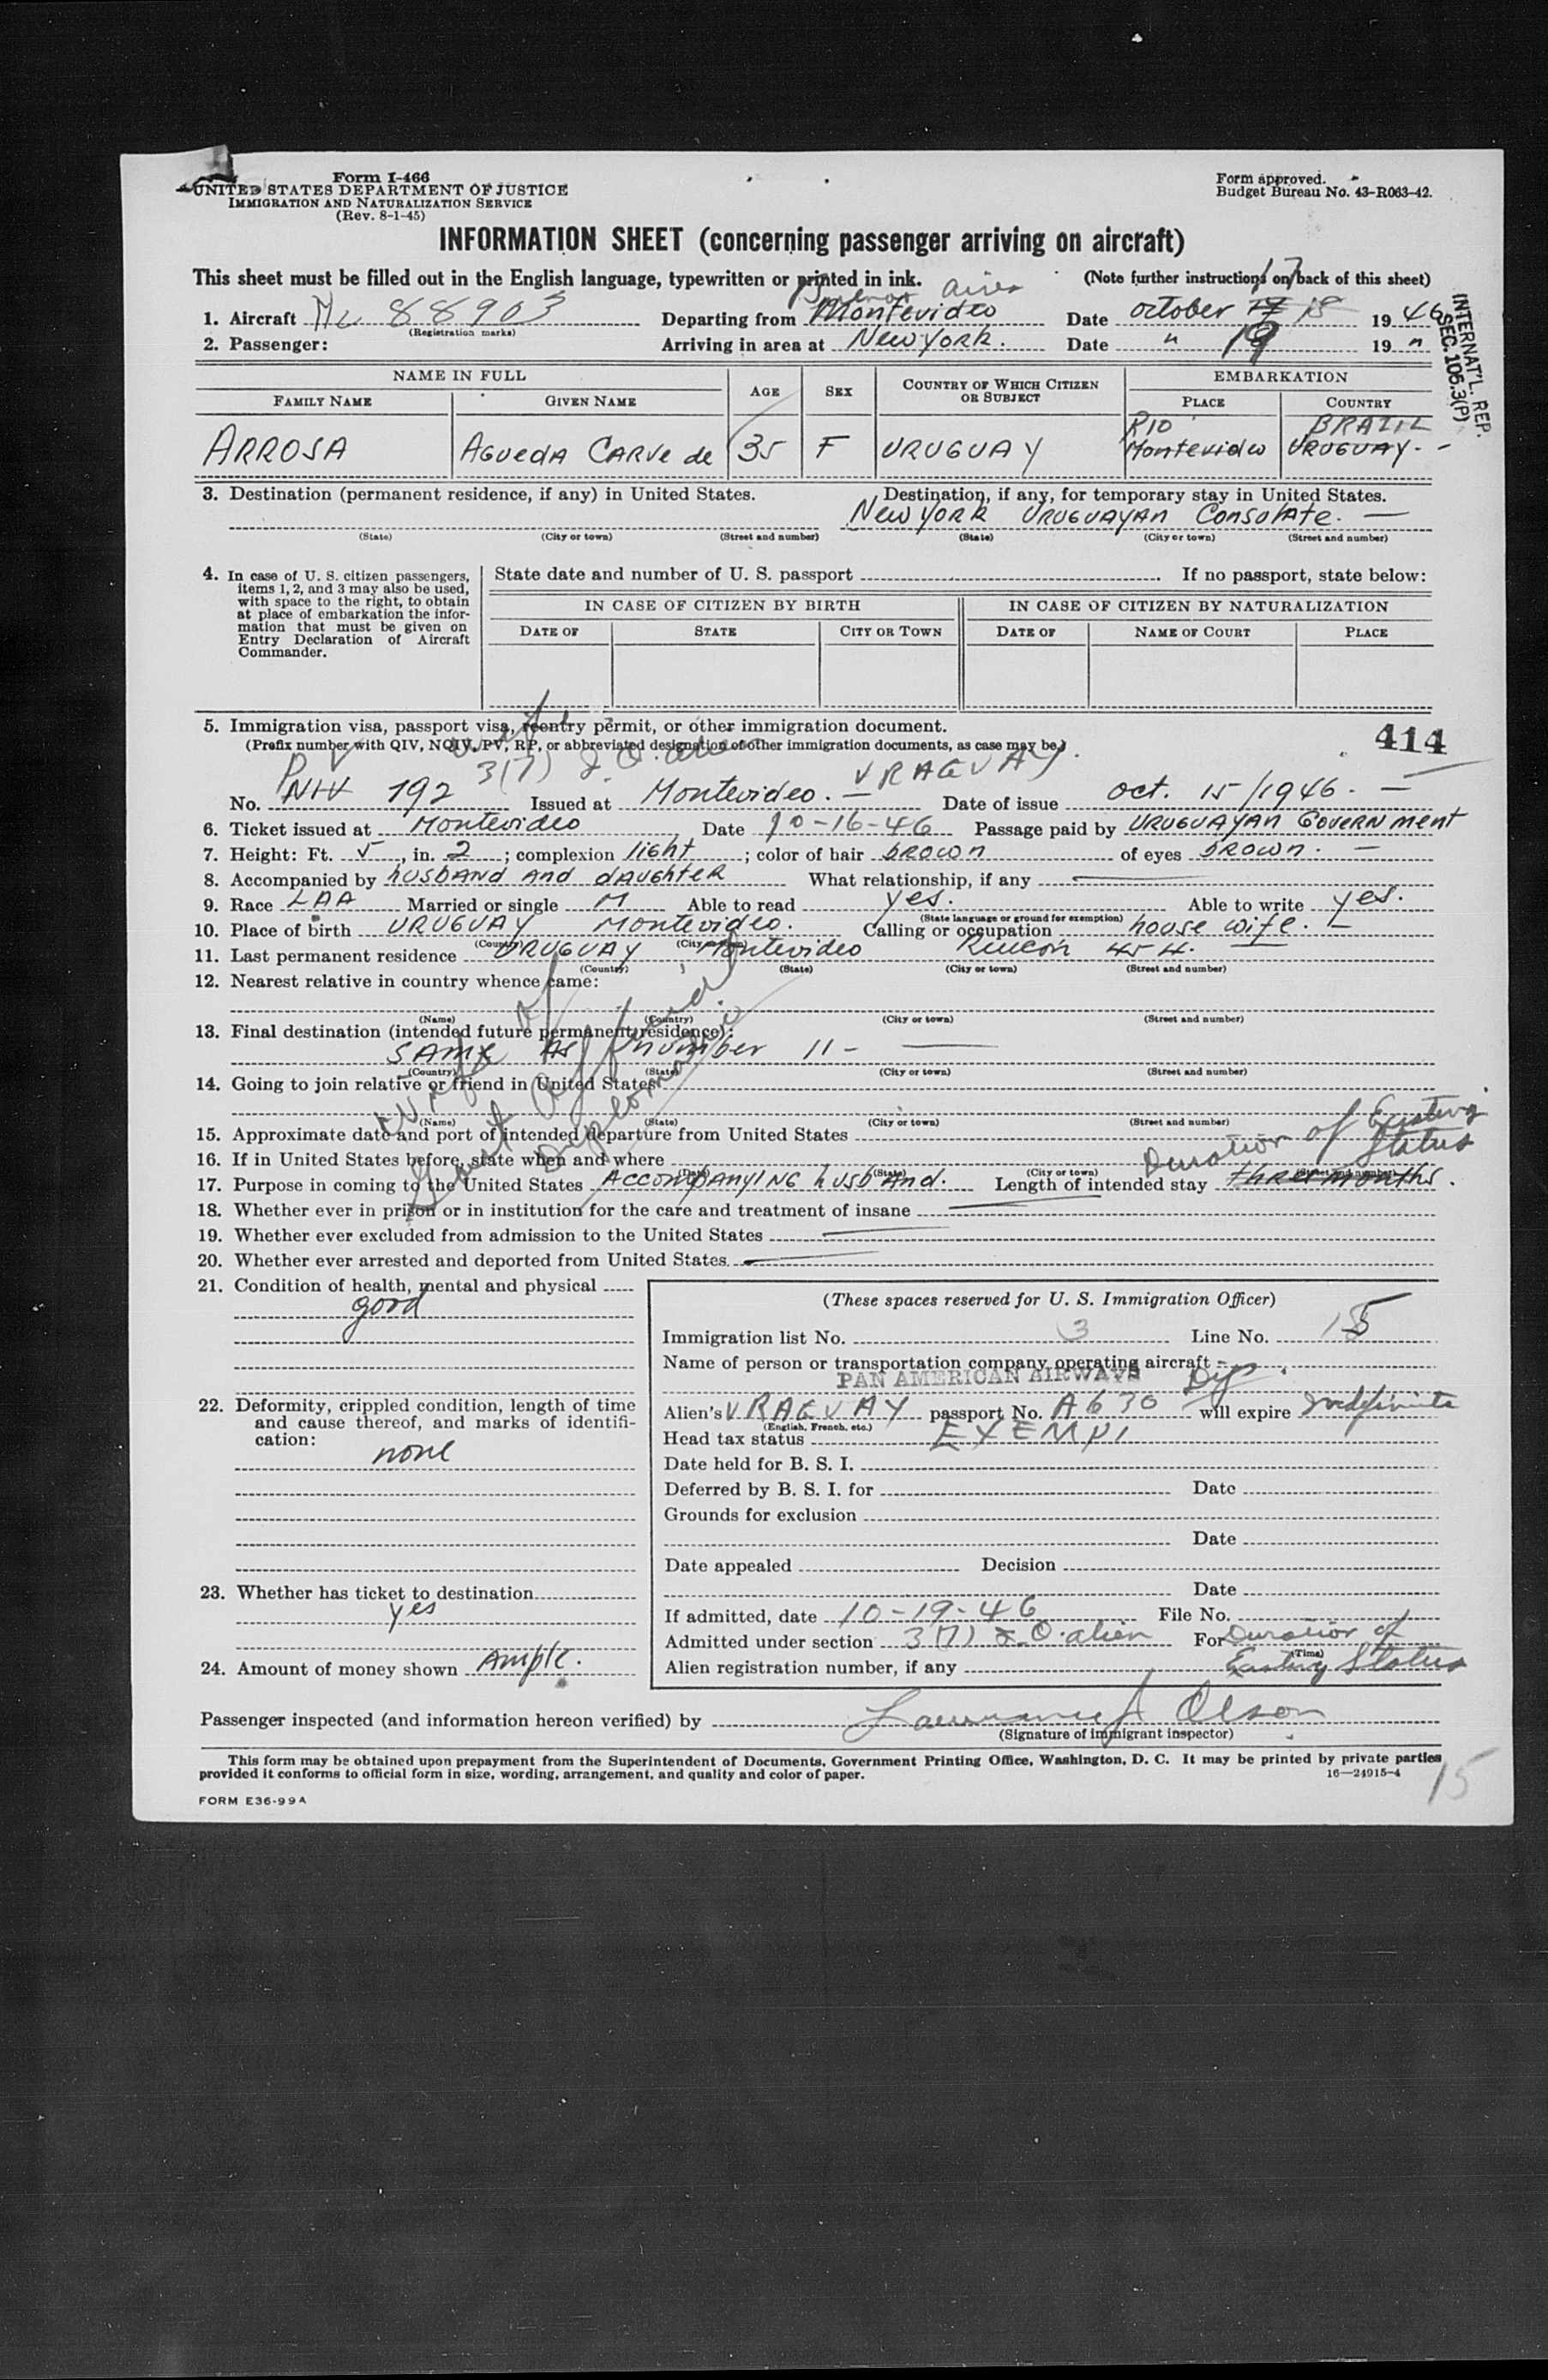 Form I-466
UNITED STATES DEPARTMENT OF JUSTICE
IMMIGRATION AND NATURALIZATION SERVICE
(Rev. 8-1-45)
Form approved.
Budget Bureau No. 43-R063-42.
INFORMATION SHEET (concerning passenger arriving on aircraft)
This sheet must be filled out in the English language, typewritten or printed in ink. (Note further instructions on back of this sheet)
Buenos Aires 17
1. Aircraft Nc 88903 Departing from Montevideo Date October 17 18 1946
(Registration marks)
2. Passenger: Arriving in area at New York. Date " 19 19 "
INTERNAT'L. REP.
SEC. 106.3(P)
NAME IN FULL AGE SEX COUNTRY OF WHICH CITIZEN OR SUBJECT EMBARKATION
FAMILY NAME GIVEN NAME PLACE COUNTRY
RIO BRAZIL
ARROSA AGUEDA CARVE de 35 F URUGUAY Montevideo URUGUAY. -
3. Destination (permanent residence, if any) in United States. Destination, if any, for temporary stay in United States.
New York URUGUAYAN Consolate. —
(State) (City or town) (Street and number) (State) (City or town) (Street and number)
4. In case of U. S. citizen passengers, items 1, 2, and 3 may also be used, with space to the right, to obtain at place of embarkation the information that must be given on Entry Declaration of Aircraft Commander.
State date and number of U. S. passport If no passport, state below:
IN CASE OF CITIZEN BY BIRTH IN CASE OF CITIZEN BY NATURALIZATION
DATE OF STATE CITY OR TOWN DATE OF NAME OF COURT PLACE
5. Immigration visa, passport visa, reentry permit, or other immigration document. 414
(Prefix number with QIV, NQIV, PV, RP, or abbreviated designation of other immigration documents, as case may be.)
PV 3(7) URAGUAY.
No. NIV 192 Issued at Montevideo. — Date of issue oct. 15/1946. —
6. Ticket issued at Montevideo Date 10-16-46 Passage paid by URUGUAYAN Government
7. Height: Ft. 5, in. 2; complexion light; color of hair brown of eyes brown. —
8. Accompanied by husband and daughter What relationship, if any —
9. Race LAA Married or single M Able to read yes. Able to write yes.
(State language or ground for exemption)
10. Place of birth URUGUAY Montevideo. Calling or occupation house wife. —
(Country) (City or town)
11. Last permanent residence URUGUAY Montevideo Rincon 454.
(Country) (State) (City or town) (Street and number)
12. Nearest relative in country whence came:
(Name) (Country) (City or town) (Street and number)
13. Final destination (intended future permanent residence):
same as number 11 - —
(Country) (State) (City or town) (Street and number)
14. Going to join relative or friend in United States
(Name) (State) (City or town) (Street and number)
wife of
Govt Official
Diplomatic
15. Approximate date and port of intended departure from United States
16. If in United States before, state when and where
(Date) (State) (City or town) (Street and number)
Duration of Existing Status
17. Purpose in coming to the United States Accompanying husband. Length of intended stay three months.
18. Whether ever in prison or in institution for the care and treatment of insane —
19. Whether ever excluded from admission to the United States —
20. Whether ever arrested and deported from United States. —
21. Condition of health, mental and physical
good
22. Deformity, crippled condition, length of time and cause thereof, and marks of identification:
none
23. Whether has ticket to destination
yes
24. Amount of money shown Ample.
(These spaces reserved for U. S. Immigration Officer)
Immigration list No. 3 Line No. 15
Name of person or transportation company operating aircraft
PAN AMERICAN AIRWAYS Dip.
Alien's URAGUAY passport No. A630 will expire Indefinite
(English, French, etc.)
Head tax status EXEMPT
Date held for B. S. I.
Deferred by B. S. I. for Date
Grounds for exclusion
Date
Date appealed Decision
Date
If admitted, date 10-19-46 File No.
Admitted under section 3(7) I.O. alien For Duration of
(Time)
Alien registration number, if any Existing Status
Passenger inspected (and information hereon verified) by Lawrance A Olson
(Signature of immigrant inspector)
This form may be obtained upon prepayment from the Superintendent of Documents, Government Printing Office, Washington, D. C. It may be printed by private parties
provided it conforms to official form in size, wording, arrangement, and quality and color of paper. 16—24915-4
15
FORM E36-99A